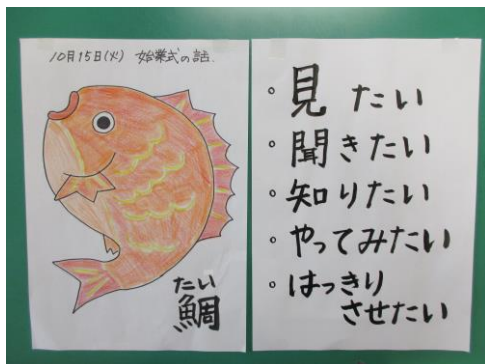 10月15日(火) 始業式の話.
たい
鯛
。見たい
。聞きたい
。知りたい
。やってみたい
。はっきり
させたい